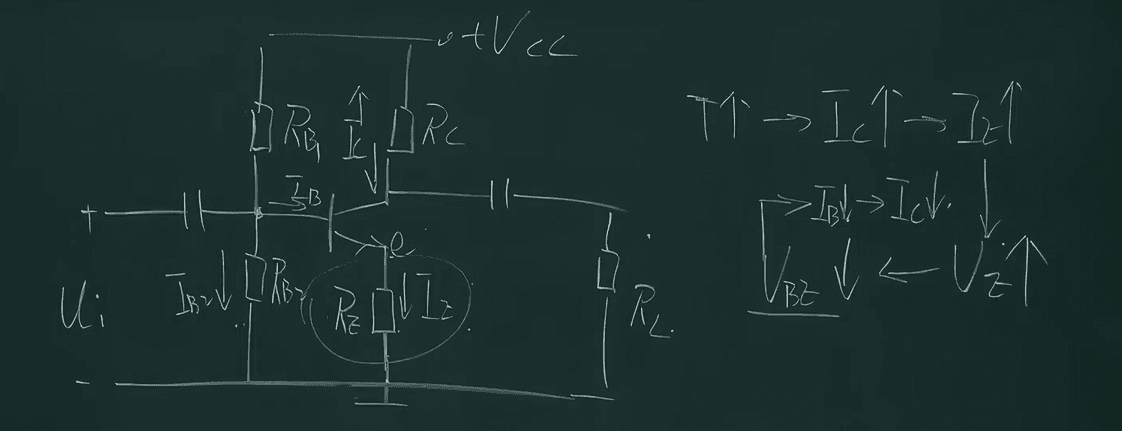 +VCC
RB1
IC
RC
IB
+
e
IB2
RB2
RE
IE
Ui
RL
-
T↑ → IC↑ → IE↑
→ IB↓ → IC↓
VBE ↓ ← VE↑